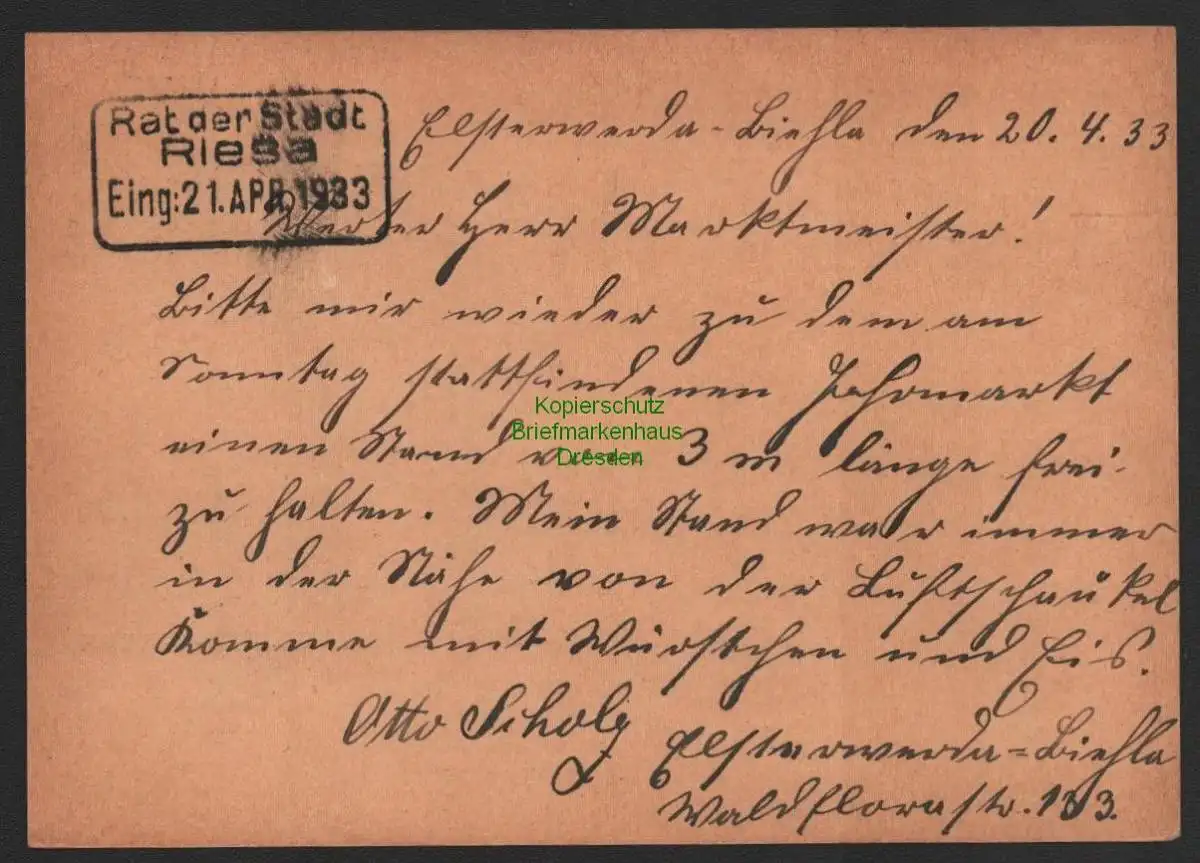 Rat der Stadt
Riesa
Eing: 21. APR. 1933
Elsterwerda-Biehla den 20. 4. 33
Werter Herr Marktmeister!
Bitte mir wieder zu dem am
Sonntag stattfindenen Jahrmarkt
einen Stand von 3 m länge frei-
zu halten. Mein Stand war immer
in der Nähe von der Luftschaukel
Komme mit Würstchen und Eis.
Otto Scholz
Elsterwerda=Biehla
Waldflorastr. 133.
Kopierschutz
Briefmarkenhaus
Dresden